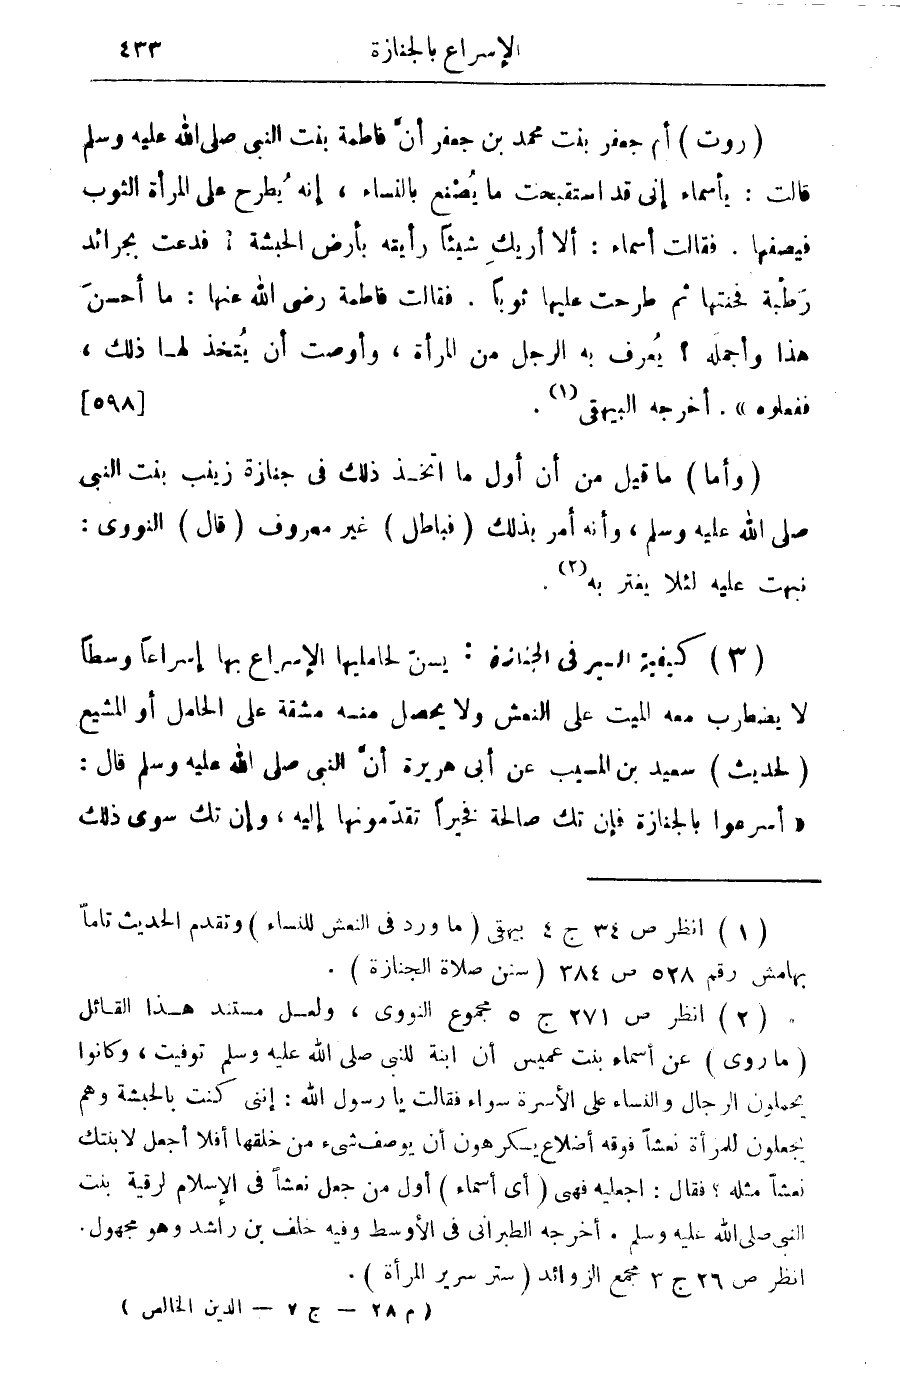 الإسراع بالجنازة ٤٣٣
( روت ) أم جعفر بنت محمد بن جعفر أنّ فاطمة بنت النبى صلى الله عليه وسلم
قالت : يأسماء إنى قد استقبحت ما يُصْنع بالنساء ، إنه يُطرح على المرأة الثوب
فيصفها . فقالت أسماء : ألا أريكِ شيئاً رأيته بأرض الحبشة ؟ فدعت بجرائد
رَطْبة فحنتها ثم طرحت عليها ثوباً . فقالت فاطمة رضى الله عنها : ما أحسنَ
هذا وأجملَه ؟ يُعرف به الرجل من المرأة ، وأوصت أن يُتخذ لها ذلك ،
ففعلوه » . أخرجه البيهقى(١) . [٥٩٨]
( وأما ) ما قيل من أن أول ما اتخذ ذلك فى جنازة زينب بنت النبى
صلى الله عليه وسلم ، وأنه أمر بذلك ( فباطل ) غير معروف ( قال ) النووى :
نبهت عليه لئلا يغتر به(٢) .
( ٣ ) كيفية السير فى الجنازة : يسنّ لحامليها الإسراع بها إسراعاً وسطاً
لا يضطرب معه الميت على النعش ولا يحصل منه مشقة على الحامل أو المشيع
( لحديث ) سعيد بن المسيب عن أبى هريرة أنّ النبى صلى الله عليه وسلم قال :
« أسرعوا بالجنازة فإن تك صالحة فخيراً تقدّمونها إليه ، وإن تك سوى ذلك
( ١ ) انظر ص ٣٤ ج ٤ بيهقى ( ما ورد فى النعش للنساء ) وتقدم الحديث تاماً
بهامش رقم ٥٢٨ ص ٣٨٤ ( سنن صلاة الجنازة ) .
( ٢ ) انظر ص ٢٧١ ج ٥ مجموع النووى ، ولعل مستند هذا القائل
( ما روى ) عن أسماء بنت عميس أن ابنة للنبى صلى الله عليه وسلم توفيت ، وكانوا
يحملون الرجال والنساء على الأسرة سواء فقالت يا رسول الله : إننى كنت بالحبشة وهم
يجعلون للمرأة نعشاً فوقه أضلاع يكرهون أن يوصف شىء من خلقها أفلا أجعل لابنتك
نعشاً مثله ؟ فقال : اجعليه فهى ( أى أسماء ) أول من جعل نعشاً فى الإسلام لرقية بنت
النبى صلى الله عليه وسلم . أخرجه الطبرانى فى الأوسط وفيه خلف بن راشد وهو مجهول .
انظر ص ٢٦ ج ٣ مجمع الزوائد ( ستر سرير المرأة ) .
( م ٢٨ — ج ٧ — الدين الخالص )